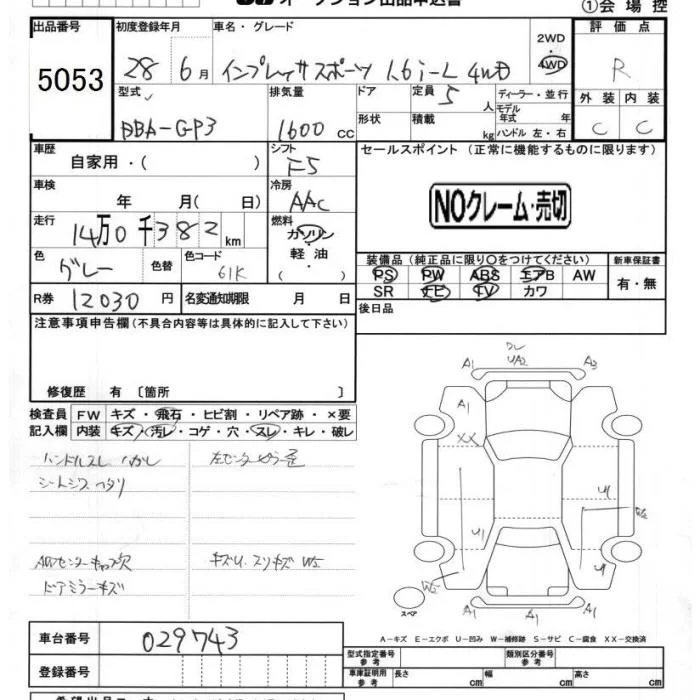 ①会場控
出品番号
5053
初度登録年月
28 6月
車名・グレード
インプレッサスポーツ 1.6i-L 4WD
2WD
4WD
評価点
R
外装 内装
C C
型式
DBA-GP3
排気量
1600 cc
ドア
形状
定員 5 人
積載 kg
ディーラー・並行
モデル年式 年
ハンドル 左・右
車歴
自家用・( )
シフト
F5
車検
年 月( 日)
冷房
AAC
走行
14万0千382 km
燃料
ガソリン
軽油
( )
色
グレー
色替
色コード
61K
R券 12030 円
名変通知期限 月 日
セールスポイント (正常に機能するものに限ります)
NOクレーム・売切
装備品(純正品に限り○をつけてください)
PS PW ABS エアB AW
SR ナビ TV カワ
新車保証書
有・無
後日品
注意事項申告欄(不具合内容等は具体的に記入して下さい)
修復歴 有〔箇所 〕
検査員記入欄
FW キズ・飛石・ヒビ割・リペア跡・×要
内装 キズ・汚レ・コゲ・穴・スレ・キレ・破レ
ハンドルスレ ハガレ
シートシワ ヘタリ
AWセンターキャップ欠
ドアミラーキズ
キズU.スリキズ W5
A1 UA2 A3
A1
XX
U1
U1
U1
W5
A1 A1 A1
スペア
A-キズ E-エクボ U-凹み W-補修跡 S-サビ C-腐食 XX-交換済
車台番号
029743
登録番号
型式指定番号 参考
類別区分番号 参考
車庫証明用 参考
長さ cm
幅 cm
高さ cm